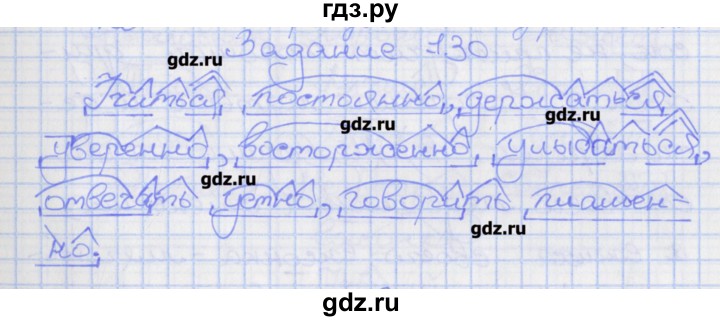 гдз.ру
Задание 130
gdz.ru
Учиться постоянно, держаться
gdz.ru
уверенно, восторженно улыбаться,
gdz.ru
отвечать устно, говорить письмен-
gdz.ru
но.
gdz.ru